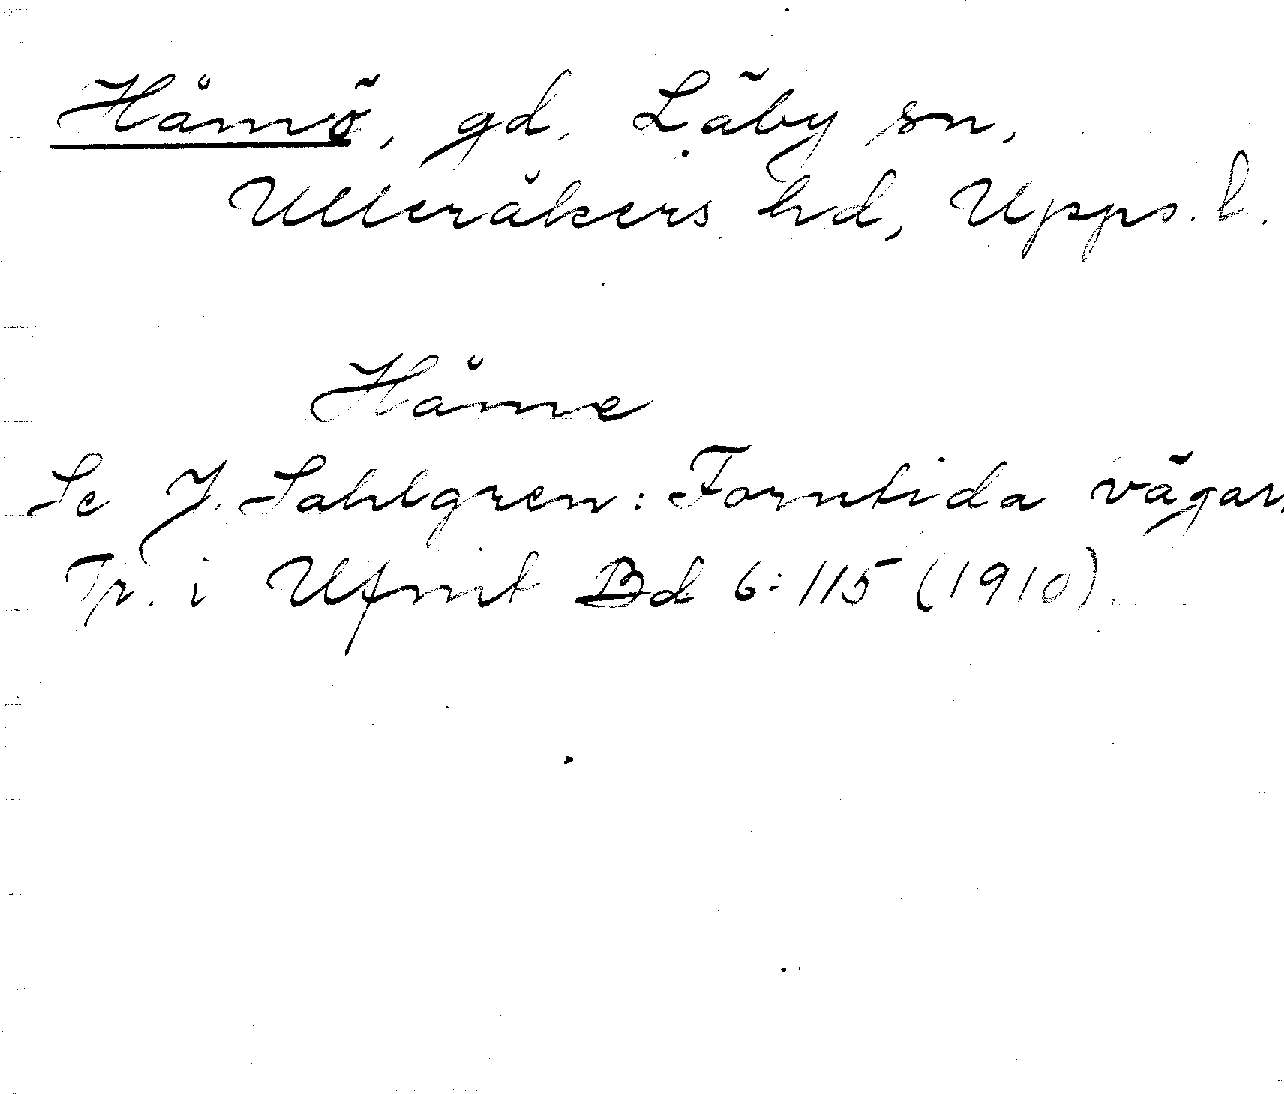 Håmö, gd, Läby sn,
Ulleråkers hd, Upps. l.
Håme
Se J. Sahlgren: Forntida vägar.
Tr. i Ufmt Bd 6:115 (1910).